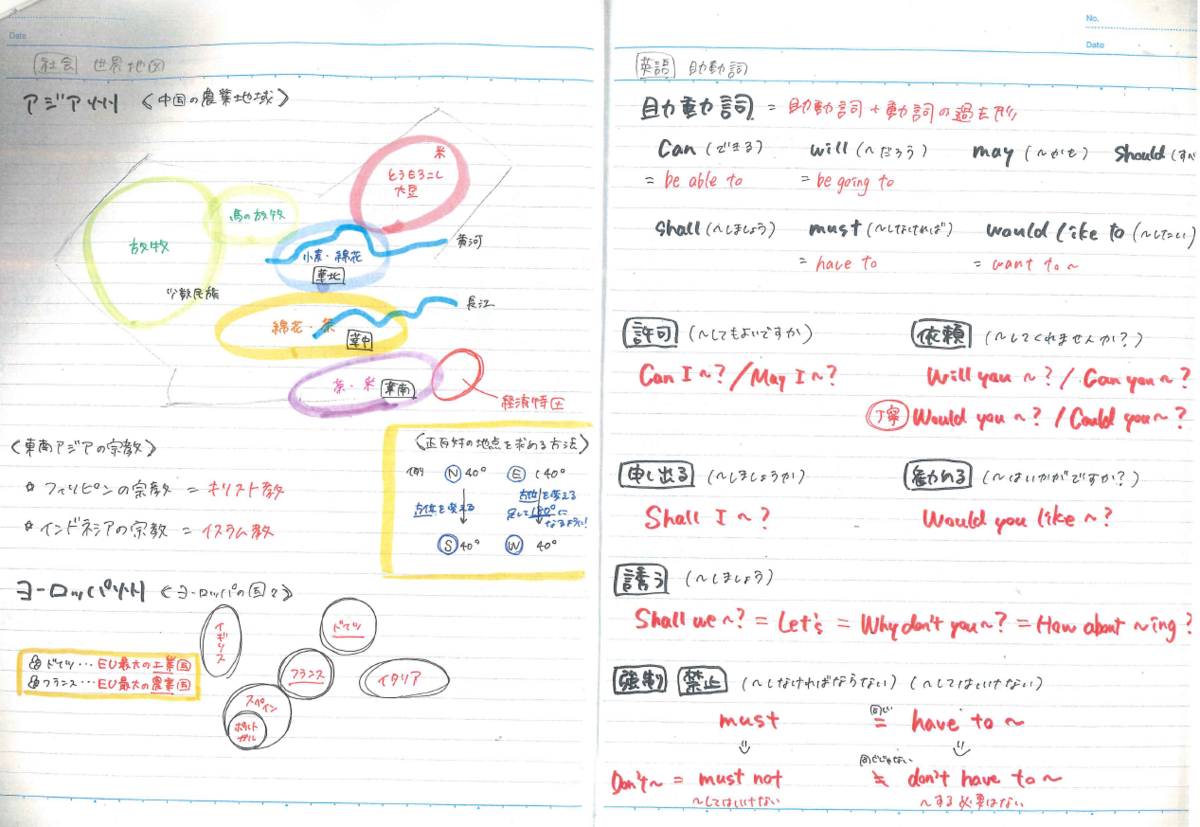 Date
社会 世界地図
アジア州 〈中国の農業地域〉
米
とうもろこし
大豆
馬の放牧
放牧
黄河
小麦・綿花
華北
少数民族
長江
綿花・茶
華中
茶・米
華南
経済特区
〈東南アジアの宗教〉
フィリピンの宗教 = キリスト教
インドネシアの宗教 = イスラム教
〈正反対の地点を求める方法〉
例 N 40° E 140°
方位を変える
方位を変える
足して180°に
なるように!
S 40° W 40°
ヨーロッパ州 〈ヨーロッパの国々〉
イギリス
ドイツ
フランス
イタリア
スペイン
ポルト
ガル
ドイツ…EU最大の工業国
フランス…EU最大の農業国
No.
Date
英語 助動詞
助動詞 = 助動詞+動詞の過去形
Can (できる) will (~だろう) may (~かも) should (すべ
= be able to = be going to
shall (~しましょう) must (~しなければ) would like to (~したい)
= have to = want to ~
許可 (~してもよいですか) 依頼 (~してくれませんか?)
Can I ~? / May I ~? Will you ~? / Can you ~?
丁寧 Would you ~? / Could you ~?
申し出る (~しましょうか) 勧める (~はいかがですか?)
Shall I ~? Would you like ~?
誘う (~しましょう)
Shall we ~? = Let's = Why don't you ~? = How about ~ing?
強制 禁止 (~しなければならない) (~してはいけない)
must 同じ = have to ~
Don't ~ = must not 同じじゃない ≠ don't have to ~
~してはいけない ~する必要はない